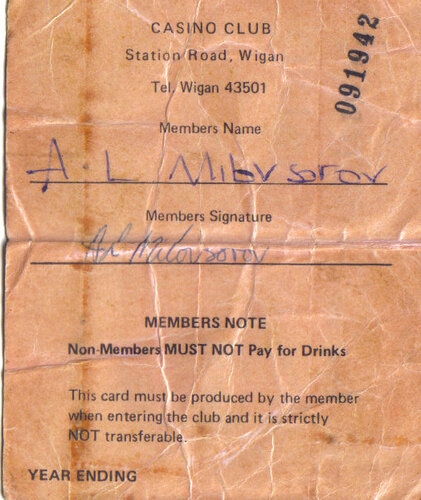 CASINO CLUB
Station Road, Wigan
Tel. Wigan 43501
091942
Members Name
A. L
Members Signature
MEMBERS NOTE
Non-Members MUST NOT Pay for Drinks
This card must be produced by the member
when entering the club and it is strictly
NOT transferable.
YEAR ENDING